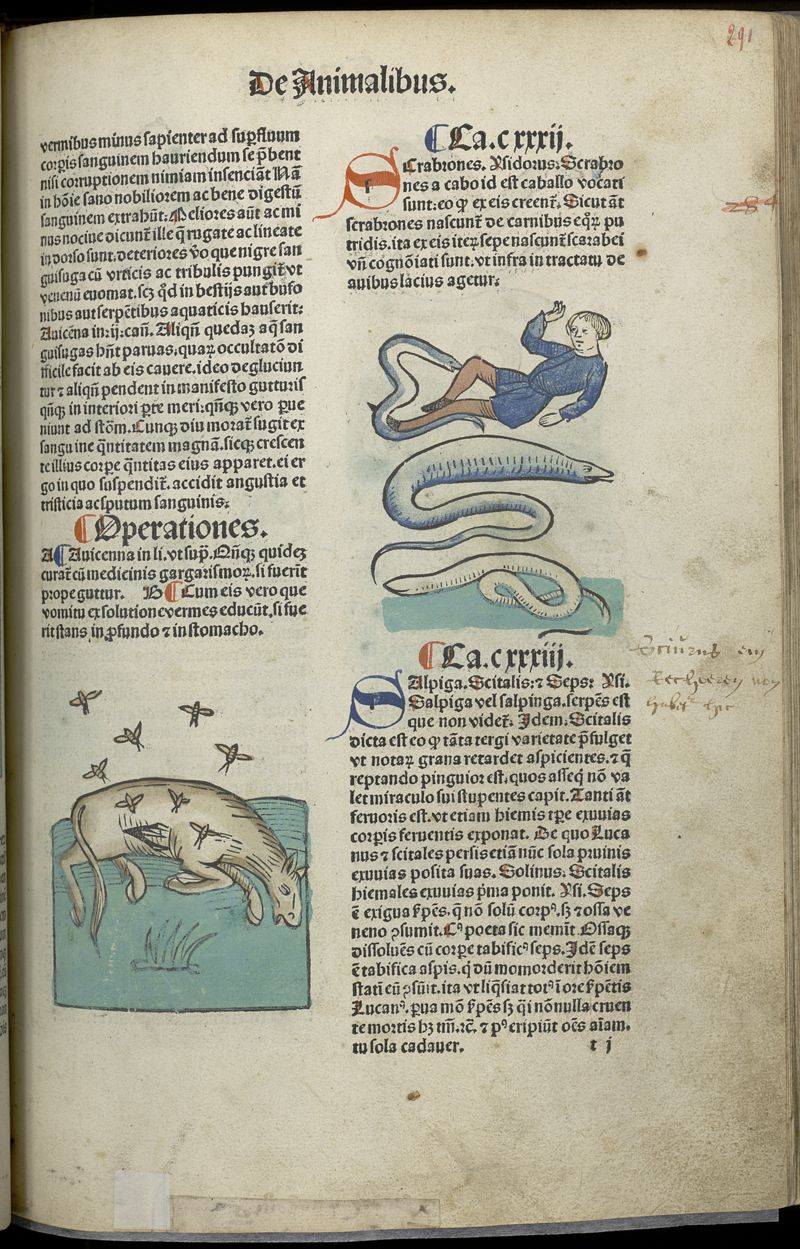 291
De Animalibus.
vermibus minus sapienter ad sup̄fluum
corp̄is sanguinem hauriendum se p̄bent
nisi corruptionem nimiam insenciāt Nā
in hōie sano nobiliorem ac bene digestū
sanguinem extrahūt: Meliores aūt ac mi
nus nociue dicunt᷑ ille q̄ rugate ac lineate
in dorso sunt. deteriores v̄o que nigre san
guisuga cū vrticis ac tribulis pungit᷑. vt
venenū euomat. scꝫ qd̄ in bestijs aut bufo
nibus aut serpētibus aquaticis hauserit:
Auicēna in .ij. cañ. Aliqñ quedaꝫ aq̄ san
guisugas hñt paruas. quaꝝ occultatō di
fficile facit ab eis cauere. ideo degluciun
tur ⁊ aliqñ pendent in manifesto gutturis
qñqꝫ in interiori p̄te meri: qñqꝫ vero p̄ue
niunt ad stōm. Cunqꝫ diu morat᷑ sugit ex
sanguine q̄ntitatem magnā. sicqꝫ crescen
te illius corp̄e q̄ntitas eius apparet. ei er
go in quo suspendit᷑. accidit angustia et
tristicia ac sputum sanguinis:
¶ Operationes.
A ¶ Auicenna in li. vt sup̄. Qñqꝫ quideꝫ
curat᷑ cū medicinis gargarismoꝝ. si fuerīt
prope guttur. B ¶ Cum eis vero que
vomitu ex solutione vermes educūt. si fue
rit stans in p̄fundo ⁊ in stomacho.
¶ Ca. c xxxij.
SCrabrones. Ysidorus: Scrabro
nes a cabo id est caballo vocati
sunt: eo ꝙ ex eis creent᷑. Sicut āt
scrabrones nascunt᷑ de carnibus eq̄ꝝ pu
tridis. ita ex eis iteꝝ sepe nascunt᷑ scarabei
vñ cognōiati sunt: vt infra in tractatu de
auibus lacius agetur:
284
¶ Ca. c xxxiij.
SAlpiga. Scitalis: ⁊ Seps: Ysi.
Salpiga vel salpinga. serpēs est
que non videt᷑. Idem. Scitalis
dicta est eo ꝙ tāta tergi varietate p̄fulget
vt notaꝝ gratia retardet aspicientes. ⁊ q̄
reptando pinguior est. quos asseq̄ nō va
let miraculo sui stupentes capit. Tanti āt
feruoris est. vt etiam hiemis tp̄e exuuias
corpis feruentis exponat. De quo Luca
nus ⁊ scitales persis etiā nūc sola pruinis
exuuias posita suas. Solinus: Scitalis
hiemales exuuias p̄ma ponit. Ysi. Seps
ē exigua s̄pēs. q̄ nō solū corpꝰ. sꝫ ⁊ ossa ve
neno ↄsumit. Cꝰ poeta sic memīt Ossaqꝫ
dissoluēs cū corp̄e tabificꝰ seps. Idē seps
ē tabifica aspis. q̄ dū momorderit hōiem
statī eū ↄsūit. ita vt liq̄fiat totꝰ ī ore s̄pētis
Lucanꝰ. p̄ua mō s̄pēs sꝫ q̄ nō nulla cruen
te mortis hꝫ tm̄. ⁊c̄. ⁊ pꝰ eripiūt oēs aīam.
tu sola cadauer. t j